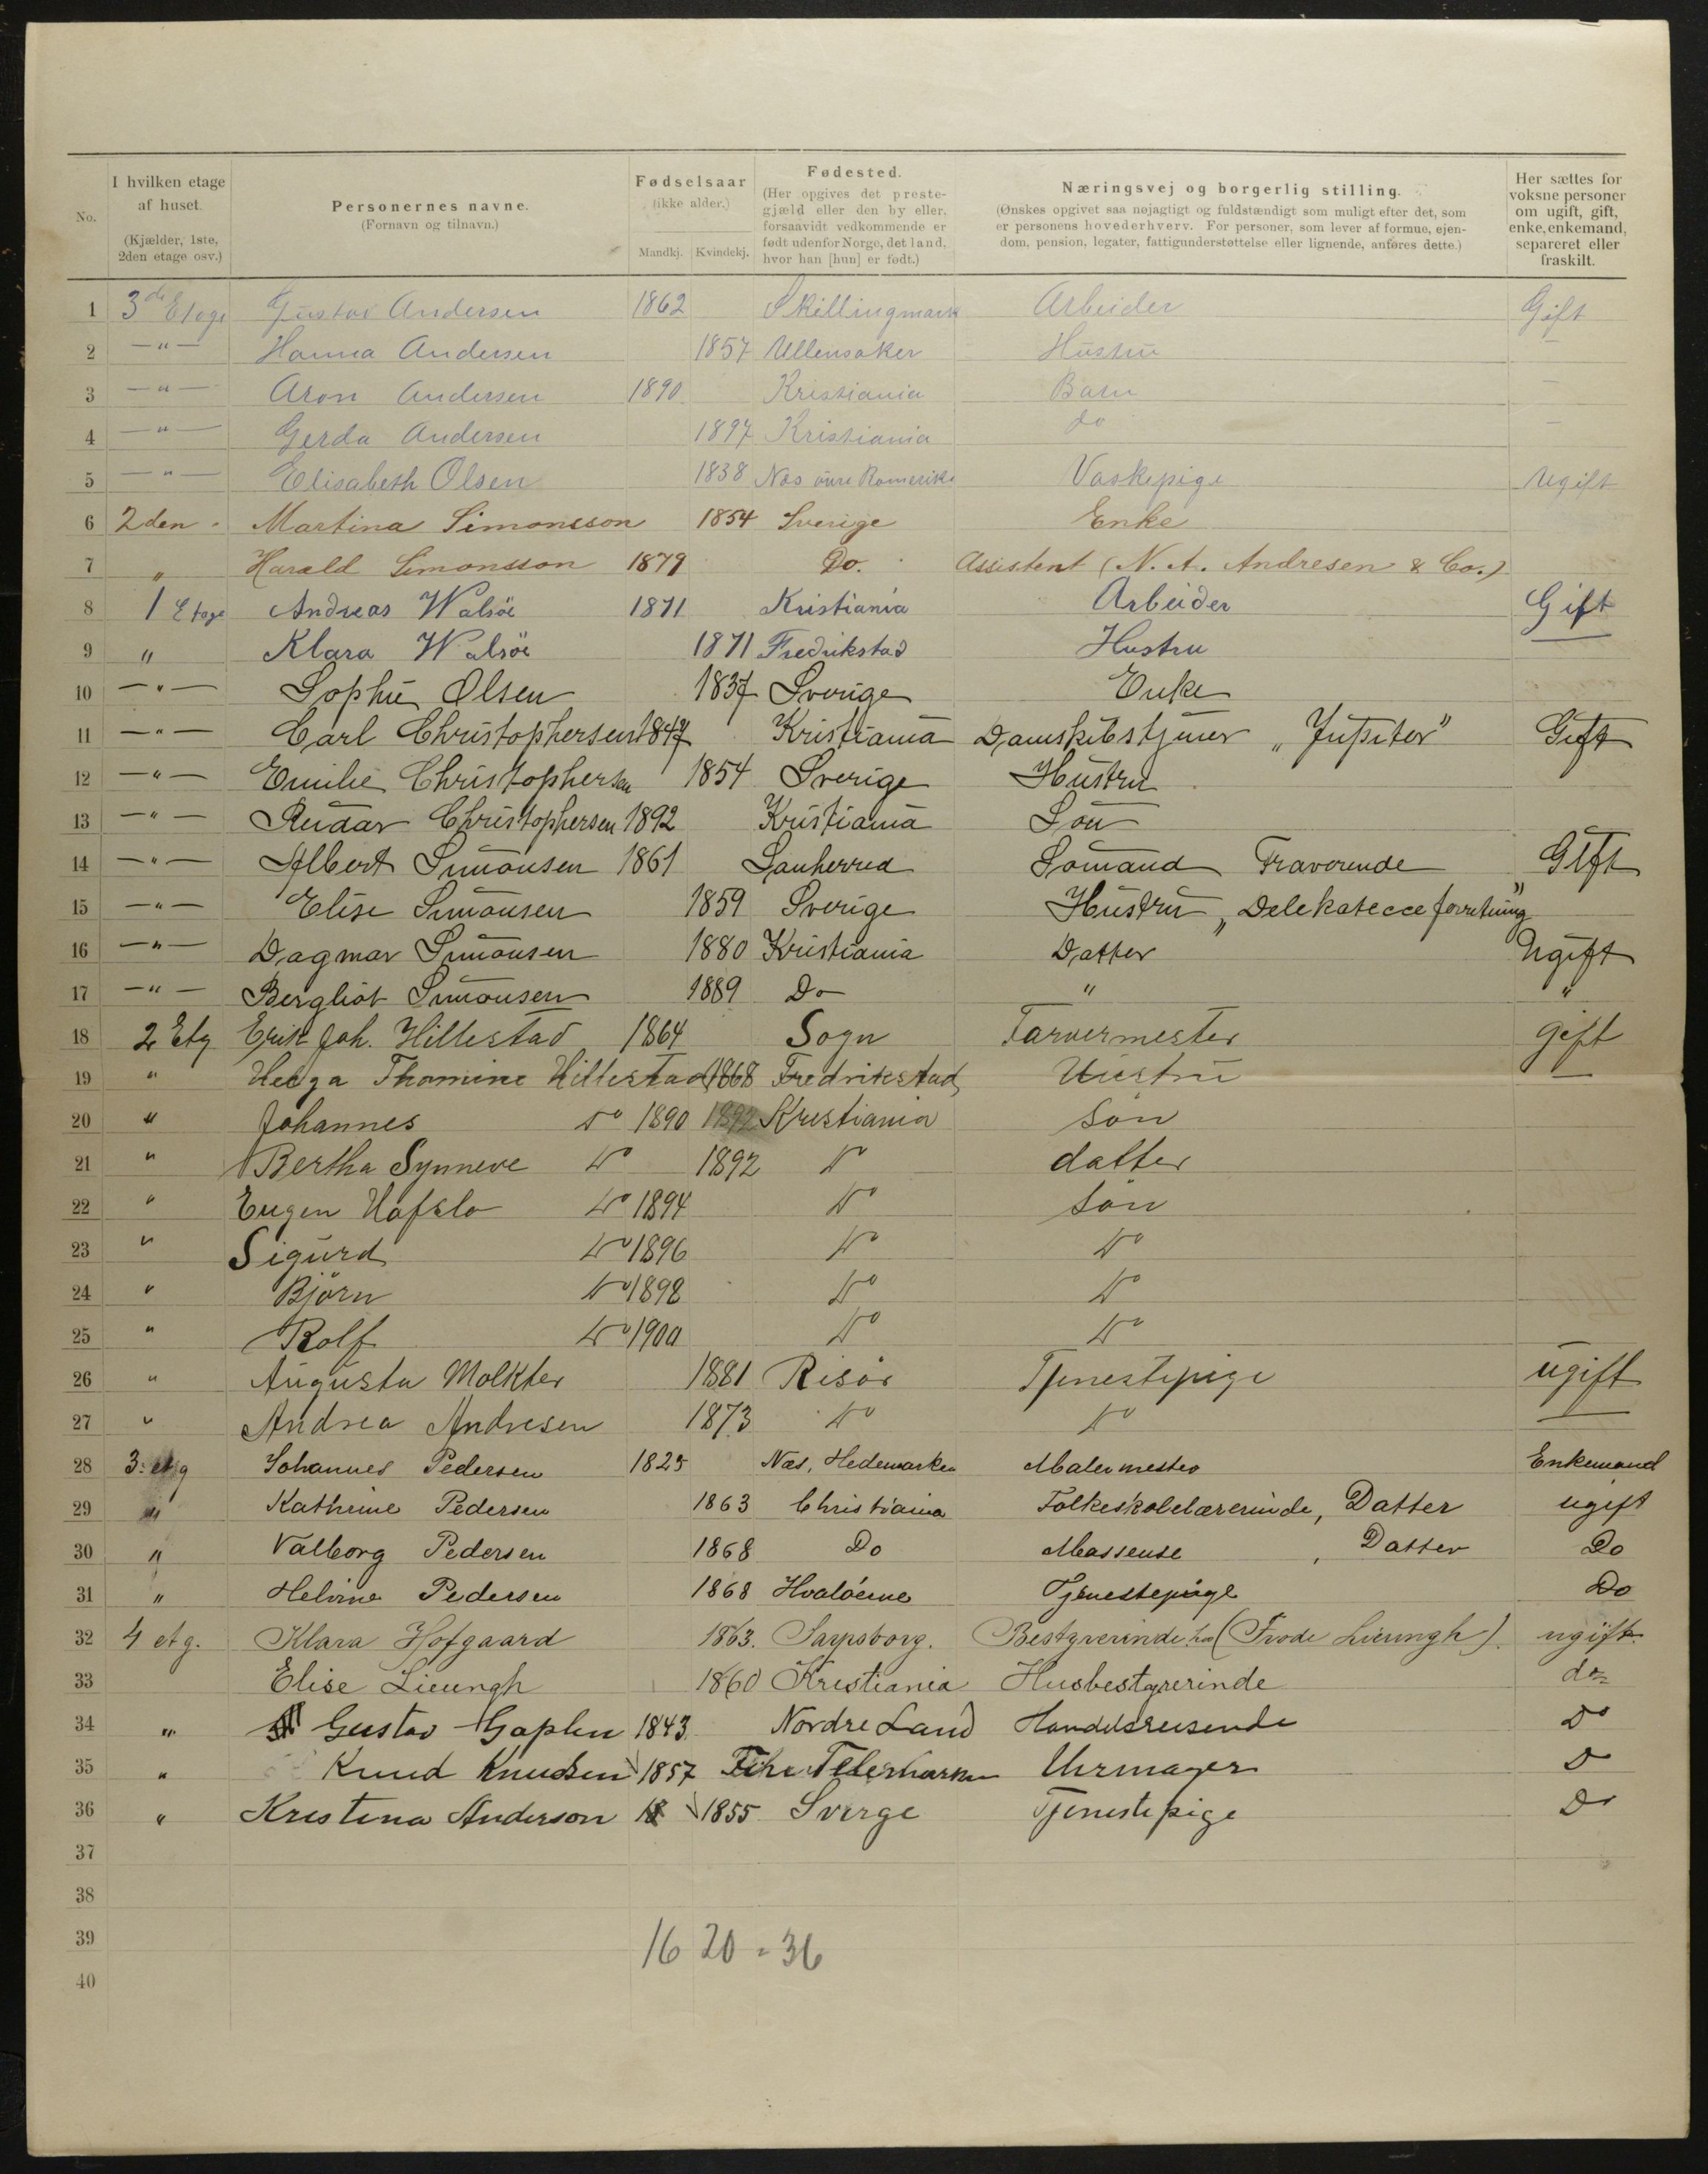 No.
I hvilken etage af huset. (Kjælder, 1ste, 2den etage osv.)
Personernes navne. (Fornavn og tilnavn.)
Fødselsaar (ikke alder.) Mandkj. Kvindekj.
Fødested. (Her opgives det prestegjæld eller den by eller, forsaavidt vedkommende er født udenfor Norge, det land, hvor han [hun] er født.)
Næringsvej og borgerlig stilling. (Ønskes opgivet saa nøjagtigt og fuldstændigt som muligt efter det, som er personens hovederhverv. For personer, som lever af formue, ejendom, pension, legater, fattigunderstøttelse eller lignende, anføres dette.)
Her sættes for voksne personer om ugift, gift, enke, enkemand, separeret eller fraskilt.
1 3de Etage Gustav Andersen 1862 Skillingmark Arbeider Gift
2 —"— Hanna Andersen 1857 Ullensaker Hustru —
3 —"— Aron Andersen 1890 Kristiania Barn —
4 —"— Gerda Andersen 1897 Kristiania do —
5 —"— Elisabeth Olsen 1838 Nes øvre Romerike Vaskepige Ugift
6 2den Martina Simonsson 1854 Sverige Enke
7 " Harald Simonsson 1879 Do. Assistent (N. A. Andresen & Co.)
8 1 Etage Andreas Walsöe 1871 Kristiania Arbeider Gift
9 " Klara Walsöe 1871 Fredrikstad Hustru —
10 —"— Sophie Olsen 1837 Sverige Enke
11 —"— Carl Christophersen 1847 Kristiania Damskibstjener "Jupiter" Gift
12 —"— Emilie Christophersen 1854 Sverige Hustru
13 —"— Reidar Christophersen 1892 Kristiania Sön
14 —"— Albert Simonsen 1861 Sanherred Sömand Fraverende Gift
15 —"— Elise Simonsen 1859 Sverige Hustru "Delekatecce forretning"
16 —"— Dagmar Simonsen 1880 Kristiania Datter Ugift
17 —"— Bergliot Simonsen 1889 Do " "
18 2 Etg Erik Joh. Hillestad 1864 Sogn Farvermester gift
19 " Helga Thomine Hillestad 1868 Fredrikstad Hustru —
20 " Johannes Do 1890 1892 Kristiania sön
21 " Bertha Synneve Do 1892 Do datter
22 " Eugen Hafslo Do 1894 Do sön
23 " Sigurd Do 1896 Do Do
24 " Björn Do 1898 Do Do
25 " Rolf Do 1900 Do Do
26 " Augusta Molkter 1881 Risör Tjenestepige ugift
27 " Andrea Andresen 1873 Do Do —
28 3: etg Johannes Pedersen 1825 Næs, Hedemarken Malermester Enkemand
29 " Kathrine Pedersen 1863 Christiania Folkeskolelærerinde, Datter ugift
30 " Valborg Pedersen 1868 Do Massøuse, Datter Do
31 " Helvine Pedersen 1868 Hvalöerne Tjenestepige Do
32 4 etg. Klara Hofgaard 1863. Sarpsborg. Bestyrerinde hos (Frode Lieungh). ugift.
33 Elise Lieungh 1860 Kristiania Husbestyrerinde do
34 " Gustav Gaplen 1843 Nordre Land Handelsreisende Do
35 " Knud Knudsen 1857 Telemarken Uhrmager Do
36 " Kristina Anderson 18 1855 Sverge Tjenestepige Do
37
38
39
40
16 20 = 36